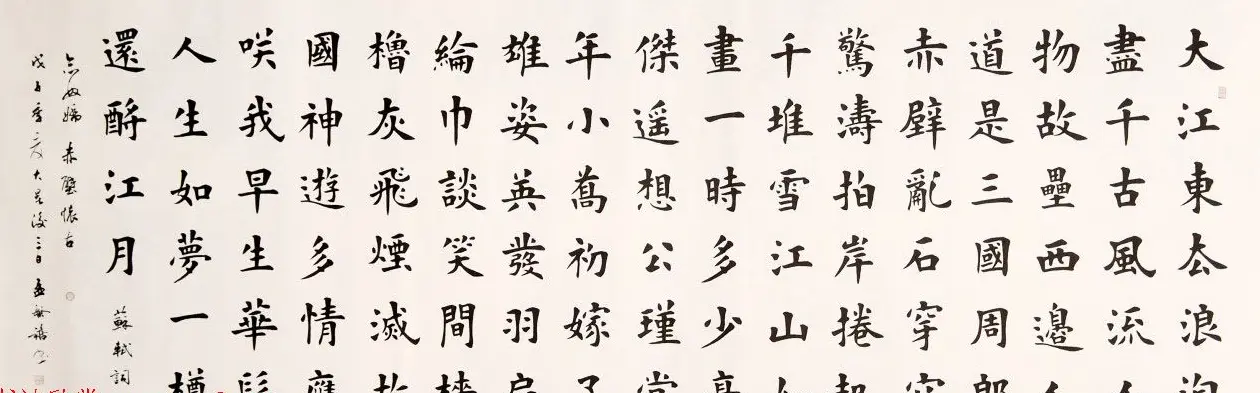 大江東厺浪淘
盡千古風流人
物故壘西邊人
道是三國周郎
赤壁亂石穿空
驚濤拍岸捲起
千堆雪江山如
畫一時多少豪
傑遥想公瑾當
年小喬初嫁了
雄姿英發羽扇
綸巾談笑間樯
櫓灰飛煙滅故
國神遊多情應
咲我早生華髮
人生如夢一樽
還酹江月 蘇軾詞
念奴嬌 赤壁懷古